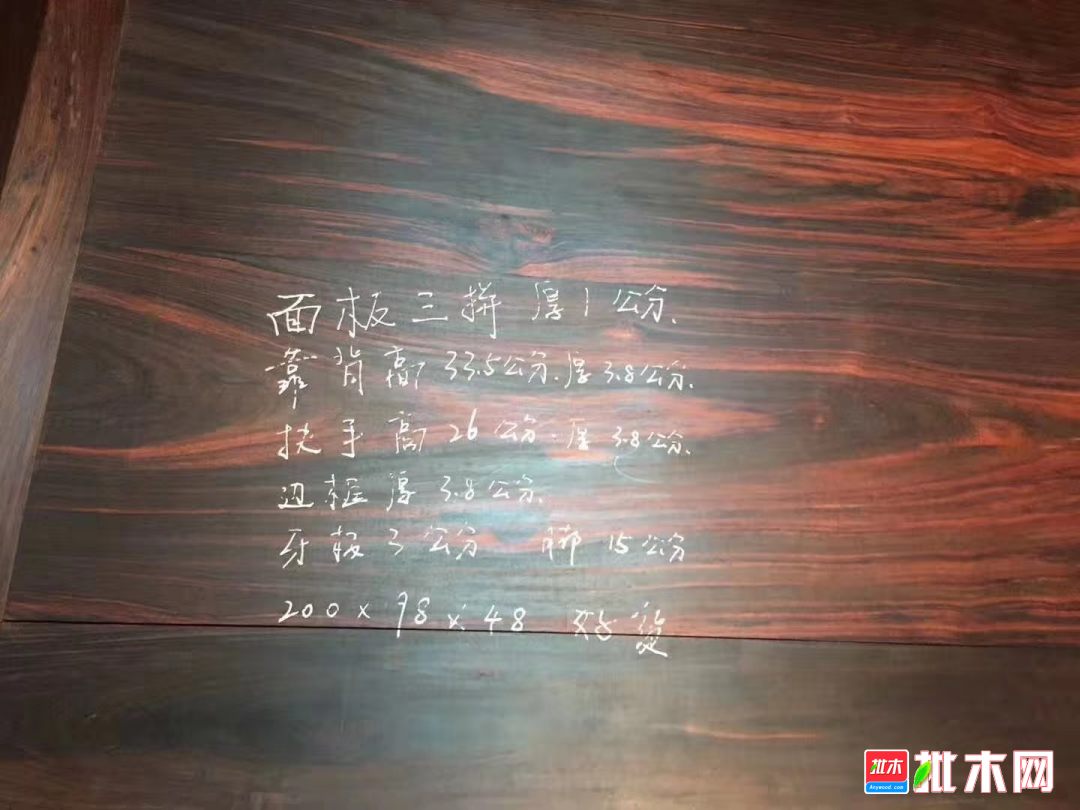 面板三拼 厚1公分.
靠背高33.5公分.厚3.8公分.
扶手高26公分.厚3.8公分.
边框厚3.8公分.
牙板3公分 脚15公分
200×98×48
批木 批木网
Anywood.com